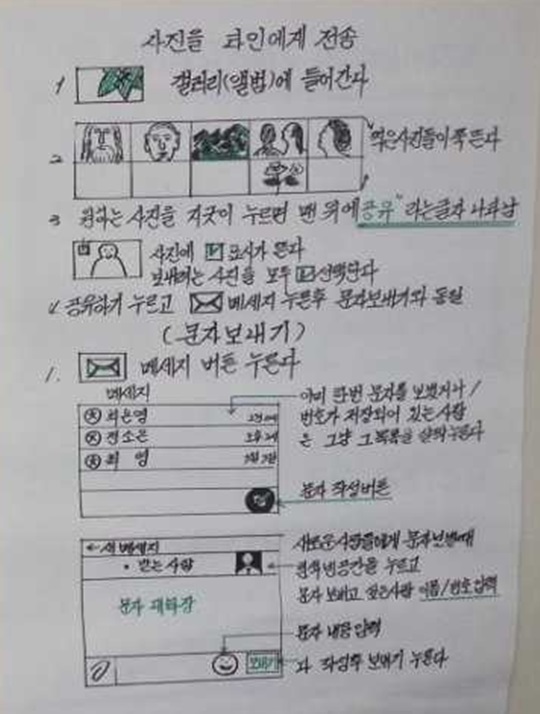 사진을 타인에게 전송
1 갤러리(앨범)에 들어간다
2 찍은사진들이 쭉 뜬다
3 원하는 사진을 지긋이 누르면 맨 위에 "공유" 라는글자 나타남
사진에 ☑표시가 뜬다
보내려는 사진을 모두 ☑선택한다
4 공유하기 누르고 메세지 누른후 문자보내기와 동일
(문자보내기)
1. 메세지 버튼 누른다
메세지
최은영
전소은
최 영
이미 한번 문자를 보냈거나/
번호가 저장되어 있는 사람
은 그냥 그 목록을 살짝누른다
문자 작성버튼
← 새메세지
• 받는사람
문자 대화창
보내기
새로운사람들에게 문자보낼때
흰색 빈공간을 누르고
문자 보내고 싶은사람 이름/번호입력
문자 내용입력
다 작성후 보내기 누른다